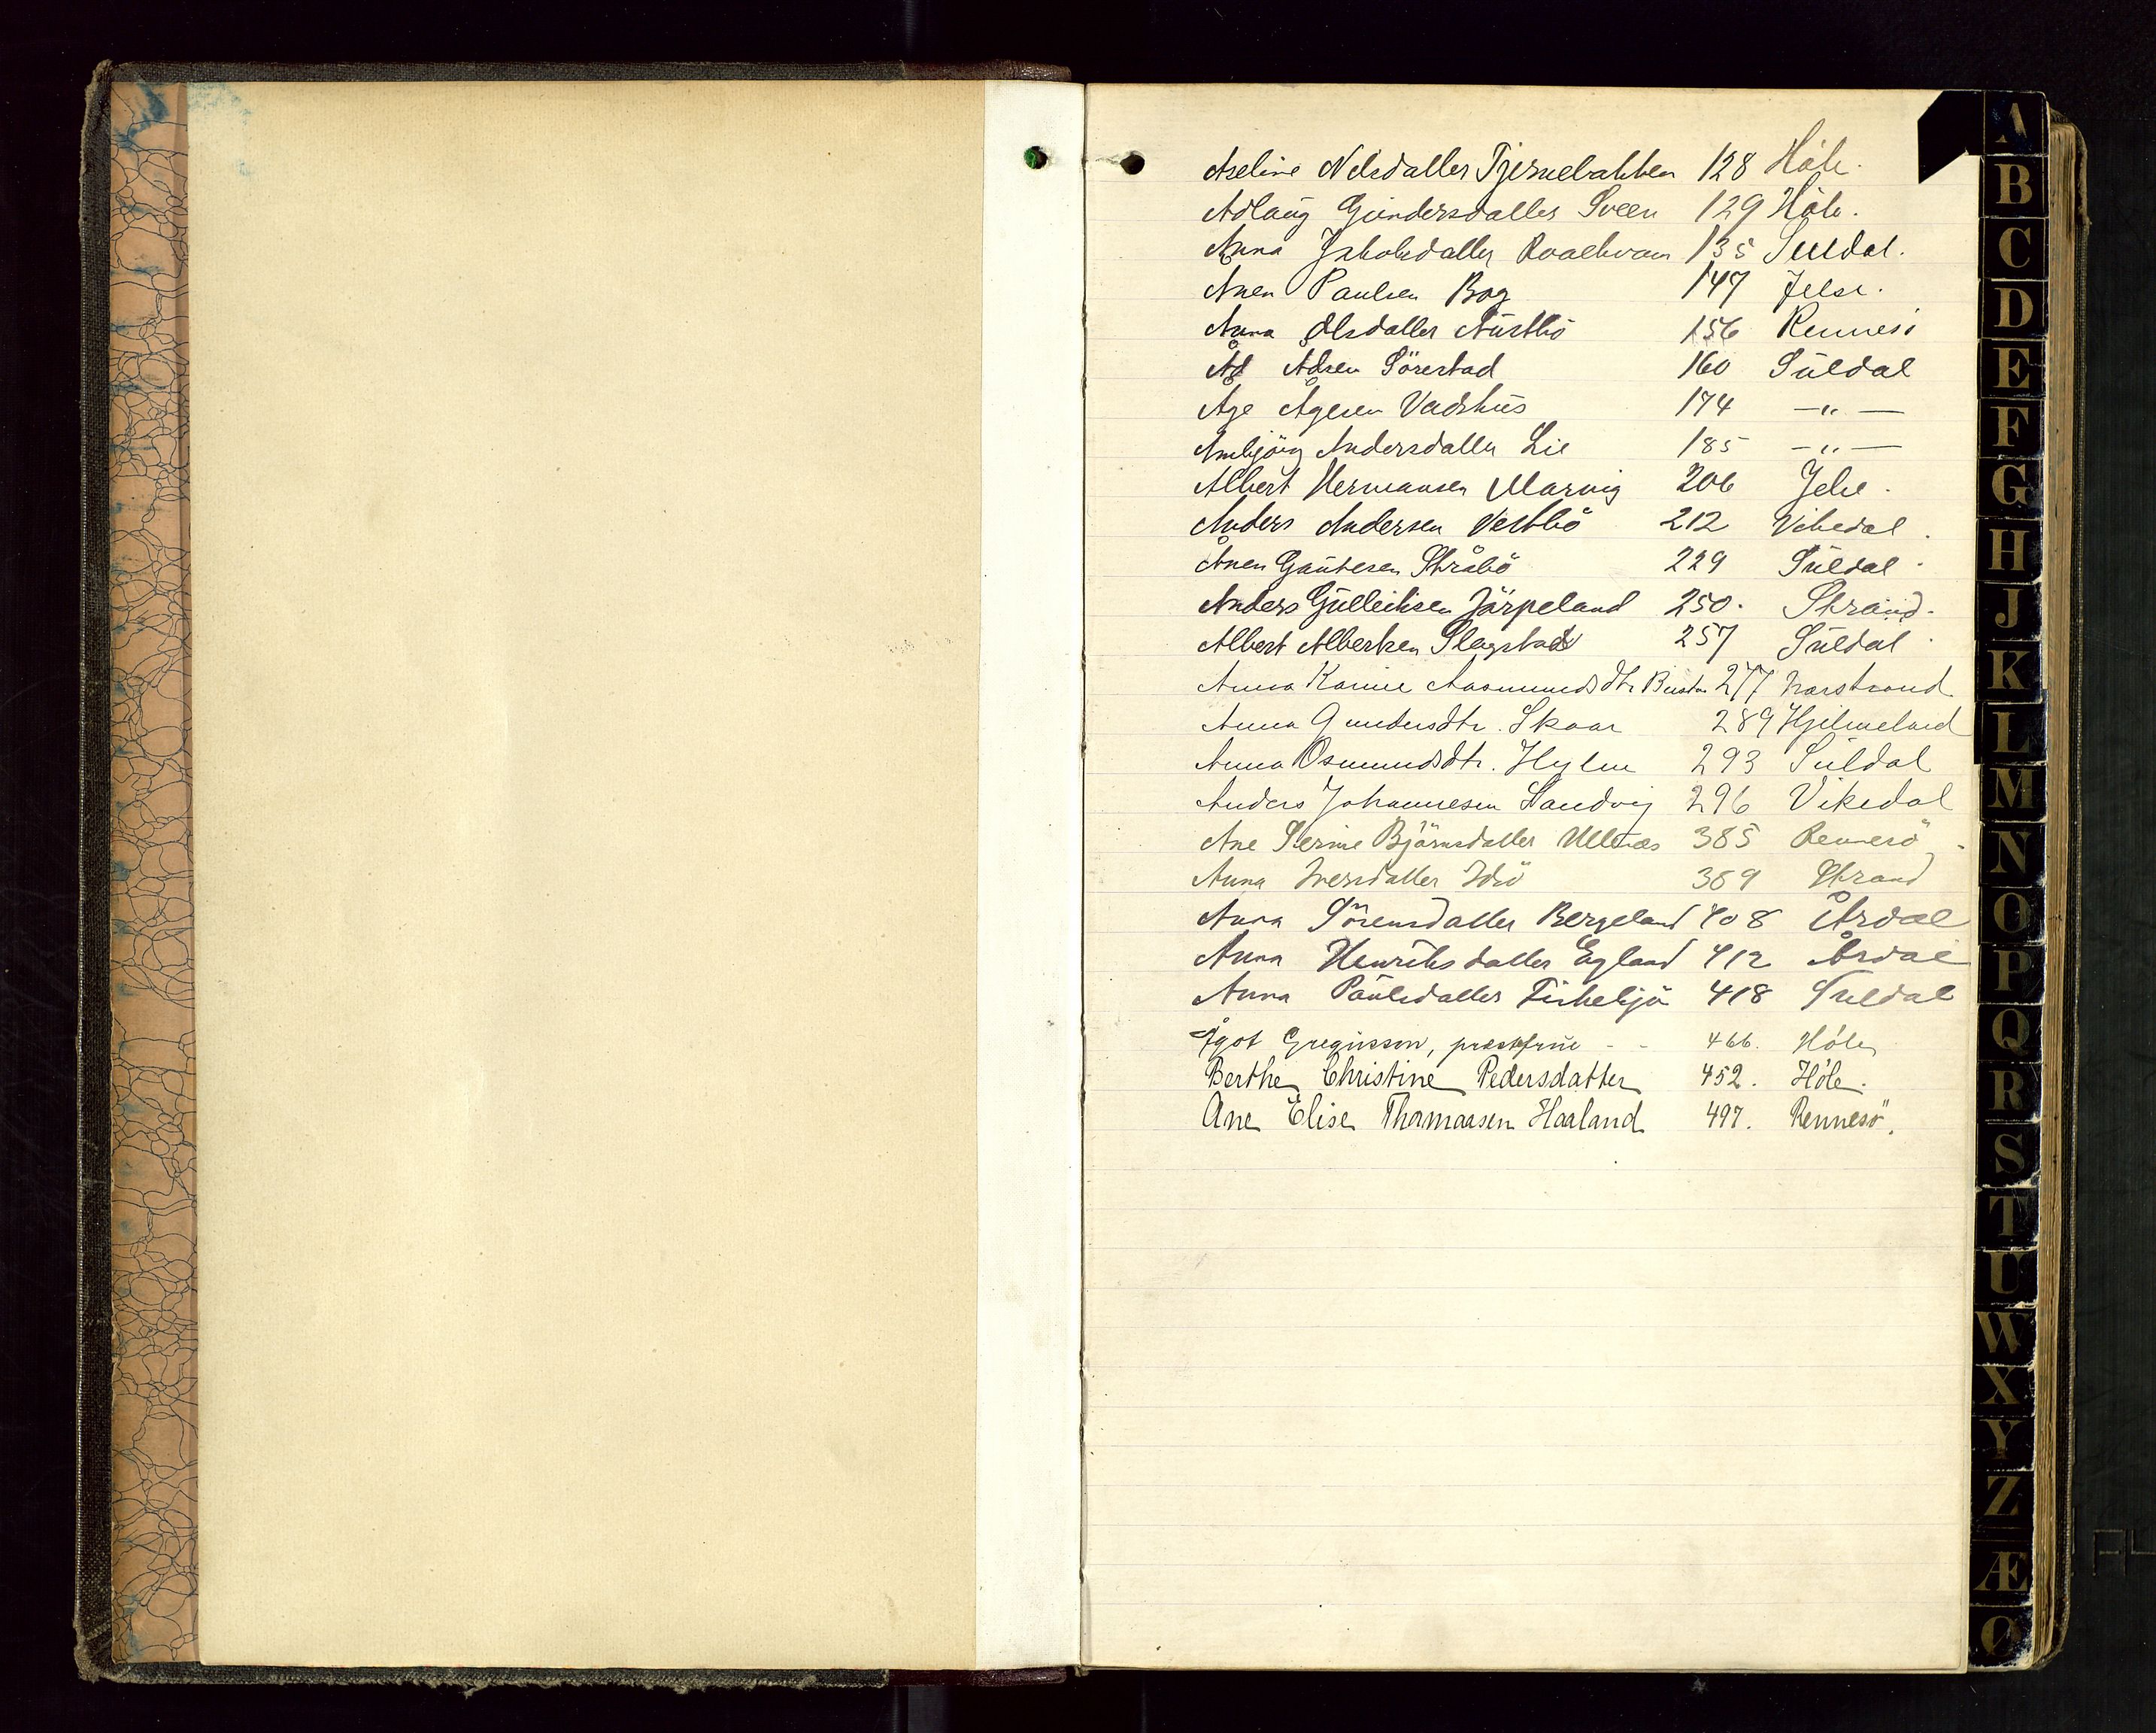 Aseline Nilsdatter Tjernebakken 128 Höle.
Adlaug Gundersdatter Sveen 129 Höle.
Anna Jakobsdatter Roalkvam 135 Suldal.
Anen Paulsen Bog 147 Jelse.
Anna Olsdatter Austbö 156 Rennesö
Åd Ådsen Sörestad 160 Suldal
Åge Ågesen Vadshus 174 —„—
Ambjörg Andersdatter Lie 185 —„—
Albert Hermansen Marvig 206 Jelse.
Anders Andersen Vestbö 212 Vikedal.
Ånen Gautesen Stråbö 229 Suldal.
Anders Gulleiksen Jörpeland 250. Strand.
Albert Albertsen Slagstad 257 Suldal.
Anna Karine Aasmundsdtr 277 Narstrand
Anna Gundersdtr. Skaar 289 Hjelmeland
Anna Osmundsdtr. Hylen 293 Suldal
Anders Johannesen Sandvig 296 Vikedal
Ane Serine Björnsdatter Ullenæs 385 Rennesö.
Anna Iversdatter Idsö 389 Strand
Anna Sörensdatter Bergeland 408 Årdal
Anna Henriksdatter Egland 412 Årdal
Anna Paulsdatter 418 Suldal
Ågot Gregusson, prestefrue - - 466. Höle
Berthe Christine Pedersdatter 452. Höle.
Ane Elise Thomaasen Haaland 497. Rennesö.
A
B
C
D
E
F
G
H
J
K
L
M
N
O
P
Q
R
S
T
U
W
X
Y
Z
Æ
Ø